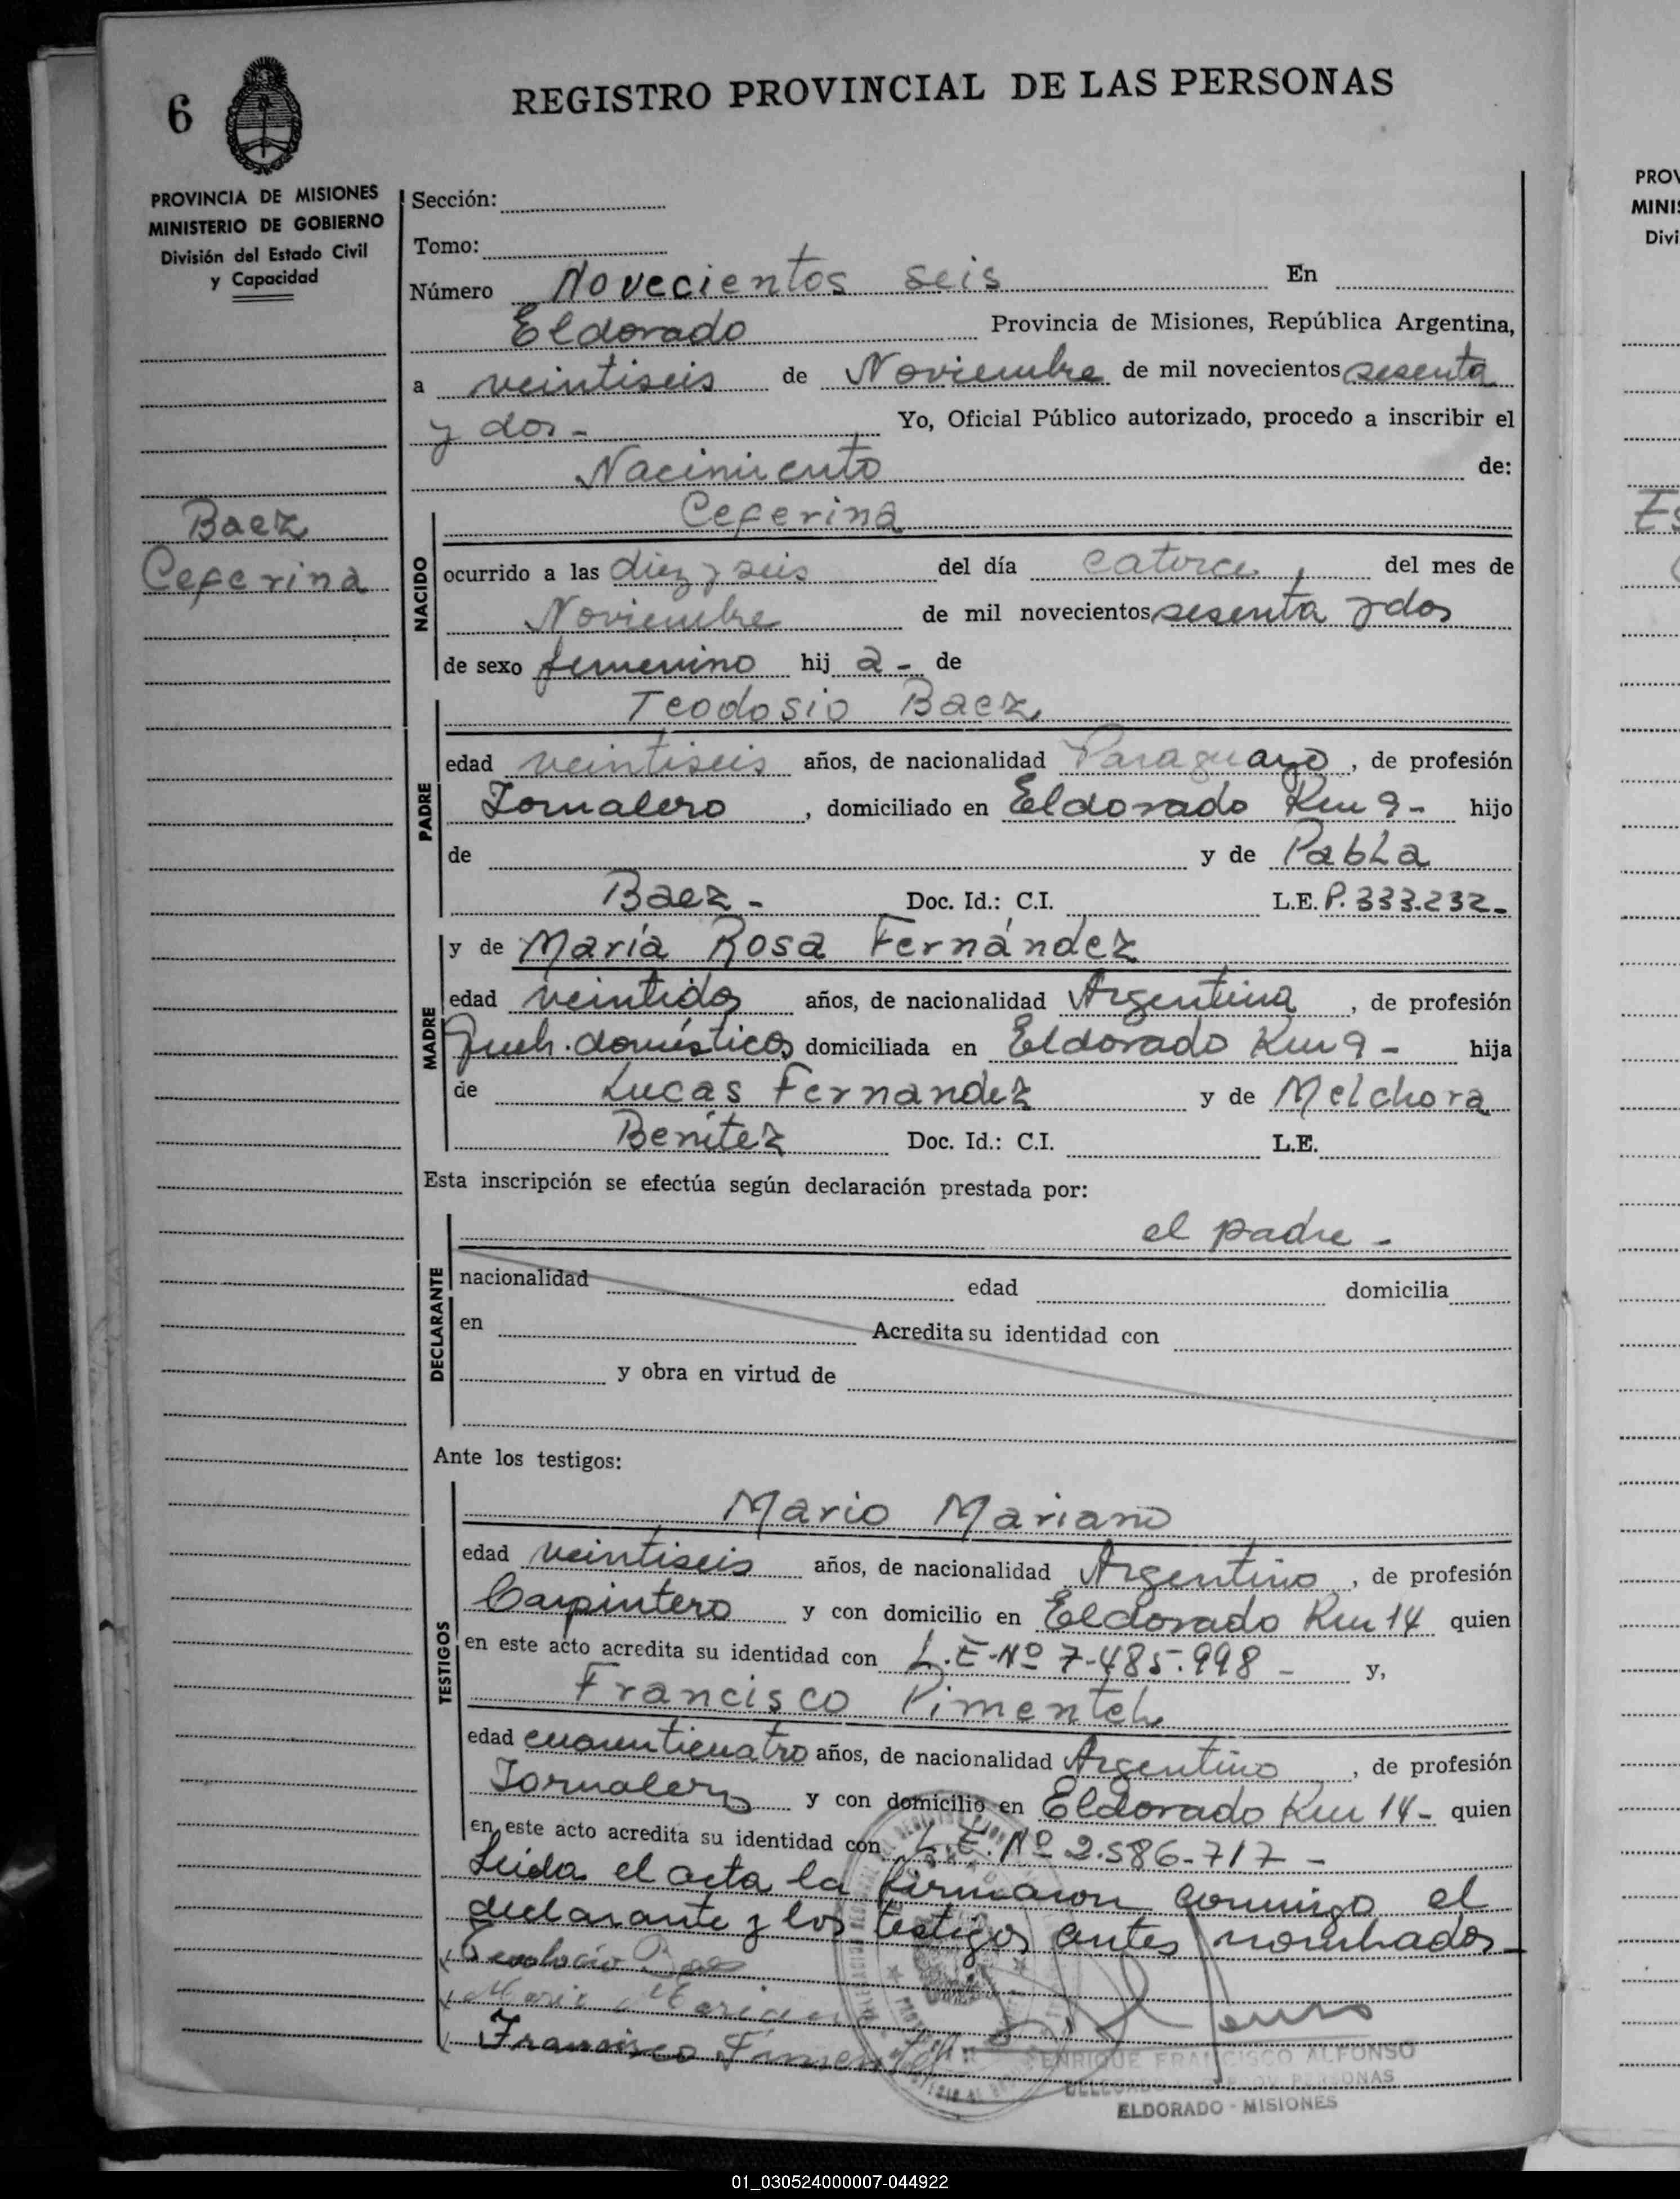 6
REGISTRO PROVINCIAL DE LAS PERSONAS
PROVINCIA DE MISIONES
MINISTERIO DE GOBIERNO
División del Estado Civil
y Capacidad
Baez
Ceferina
Sección:
Tomo:
Número Novecientos seis En
Eldorado Provincia de Misiones, República Argentina,
a veintiseis de Noviembre de mil novecientos sesenta
y dos - Yo, Oficial Público autorizado, procedo a inscribir el
Nacimiento de:
NACIDO
Ceferina
ocurrido a las diez y seis del día catorce, del mes de
Noviembre de mil novecientos sesenta y dos
de sexo femenino hij a - de
PADRE
Teodosio Baez
edad veintiseis años, de nacionalidad Paraguayo, de profesión
Jornalero, domiciliado en Eldorado Km 9 - hijo
de y de Pabla
Baez - Doc. Id.: C.I. L.E. P. 333.232 -
MADRE
y de María Rosa Fernández
edad veintidos años, de nacionalidad Argentina, de profesión
Queh. domésticos domiciliada en Eldorado Km 9 - hija
de Lucas Fernandez y de Melchora
Benítez Doc. Id.: C.I. L.E.
Esta inscripción se efectúa según declaración prestada por:
DECLARANTE
el padre -
nacionalidad edad domicilia
en Acredita su identidad con
y obra en virtud de
Ante los testigos:
TESTIGOS
Mario Mariano
edad veintiseis años, de nacionalidad Argentino, de profesión
Carpintero y con domicilio en Eldorado Km 14 quien
en este acto acredita su identidad con L.E-Nº 7-485.998 - y,
Francisco Pimentel
edad cuarenticuatro años, de nacionalidad Argentino, de profesión
Jornalero y con domicilio en Eldorado Km 14 - quien
en este acto acredita su identidad con L.E. Nº 2.586-717 -
Leida el acta la firmaron conmigo el
declarante y los testigos antes nombrados -
Teodocio Baez
Mario Mariano
Francisco Pimentel
ENRIQUE FRANCISCO ALFONSO
PERSONAS
ELDORADO - MISIONES
PROV
MINIS
Divi
Es
01_030524000007-044922